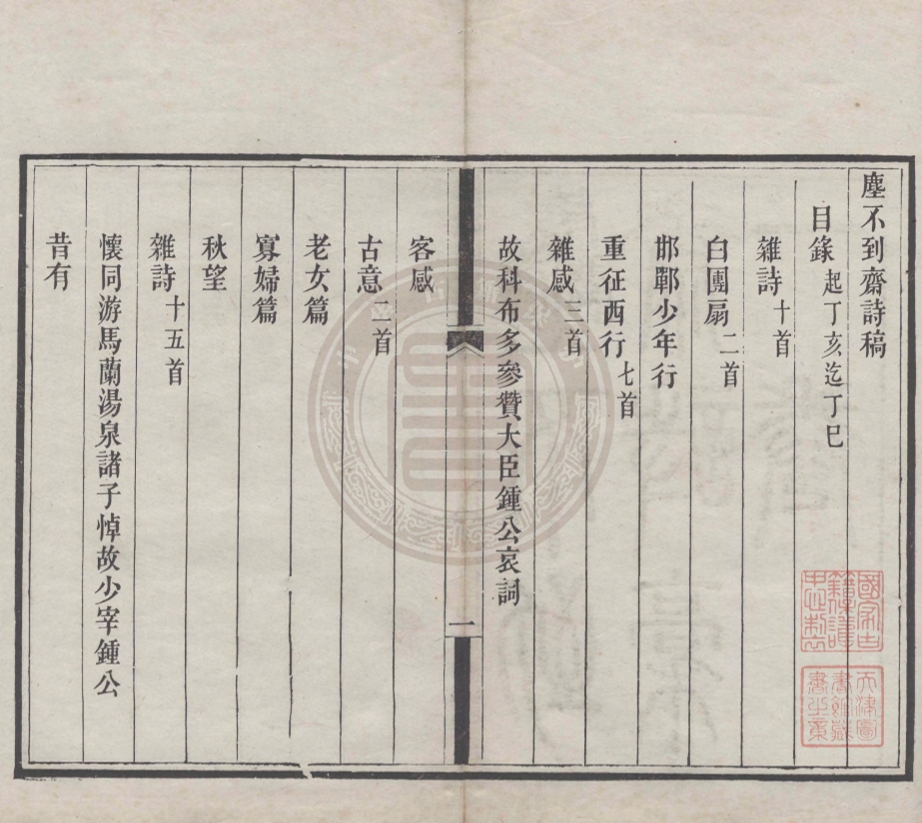 塵不到齋詩稿
目錄 起丁亥迄丁巳
雜詩 十首
白團扇 二首
邯鄲少年行
重征西行 七首
雜感 三首
故科布多參贊大臣鍾公哀詞
一
客感
古意 二首
老女篇
寡婦篇
秋望
雜詩 十五首
懷同游馬蘭湯泉諸子悼故少宰鍾公
昔有
國家古
籍保護
天津圖
書館藏
書之章